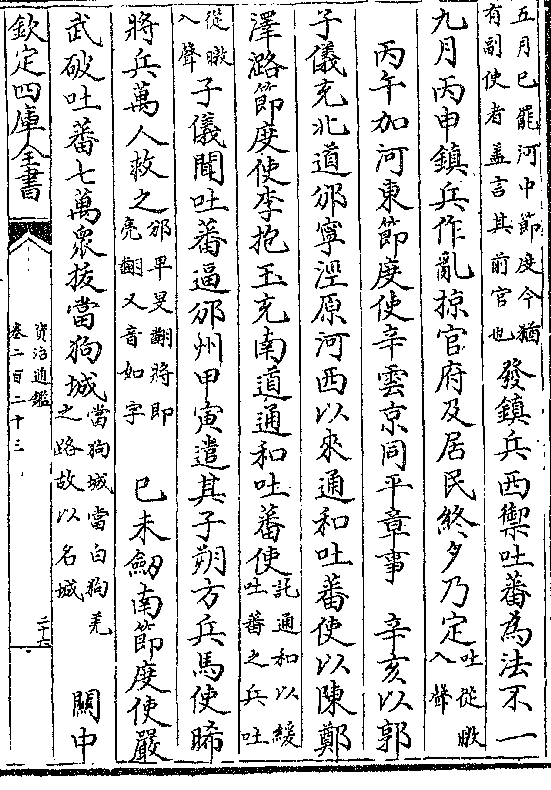 五月已罷河中節度今猶有副使者盖言其前官也發鎮兵西禦吐蕃為法不一
九月丙申鎮兵作亂掠官府及居民終夕乃定吐從暾入聲
丙午加河東節度使辛雲京同平章事 辛亥以郭
子儀充北道邠寧涇原河西以來通和吐蕃使以陳鄭
澤潞節度使李抱玉充南道通和吐蕃使託通和以緩吐蕃之兵吐
從暾入聲子儀聞吐蕃逼邠州甲寅遣其子朔方兵馬使晞
將兵萬人救之邠卑旻翻將即亮翻又音如字 已未劒南節度使嚴
武破吐蕃七萬衆拔當狗城當狗城當白狗羌之路故以名城 關中
欽定四庫全書
資治通鑑
卷二百二十三
二十六